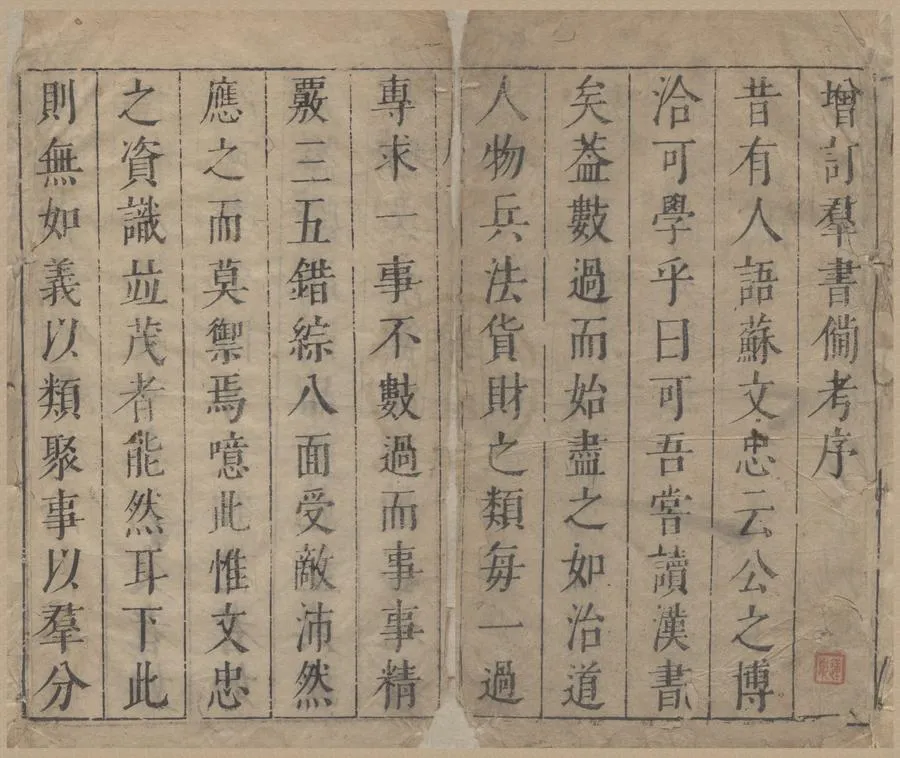 增訂羣書備考序
昔有人語蘇文忠云公之博
洽可學乎曰可吾嘗讀漢書
矣葢數過而始盡之如治道
人物兵法貨財之類每一過
專求一事不數過而事事精
覈三五錯綜八面受敵沛然
應之而莫禦焉噫此惟文忠
之資識並茂者能然耳下此
則無如義以類聚事以羣分